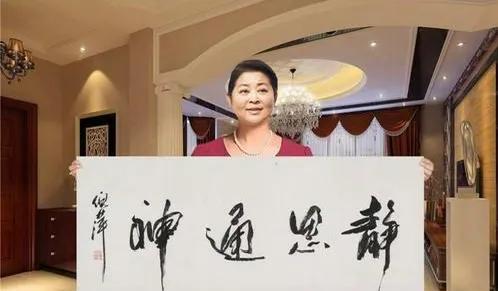 静思通神
倪萍